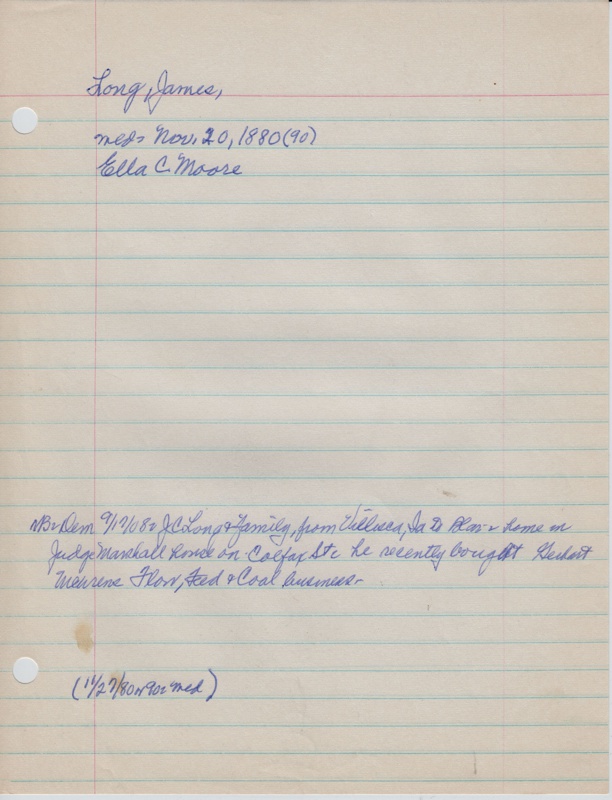 Long, James,
med- Nov. 20, 1880 (90)
Ella C. Moore
Dem 9/17/08- J C Long & Family, from Villisca, Ia to Blair- home in
Judge Marshall house on Colfax St- he recently bought Herbert
Mehrens Flour, Feed & Coal business-
(11/27/80 or 90- med)